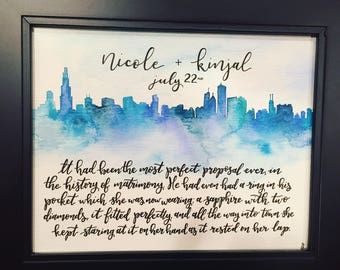 nicole + kinjal
july 22nd
It had been the most perfect proposal ever, in
the history of matrimony. He had even had a ring in his
pocket which she was now wearing, a sapphire with two
diamonds, it fitted perfectly and all the way into town she
kept staring at it on her hand as it rested on her lap.